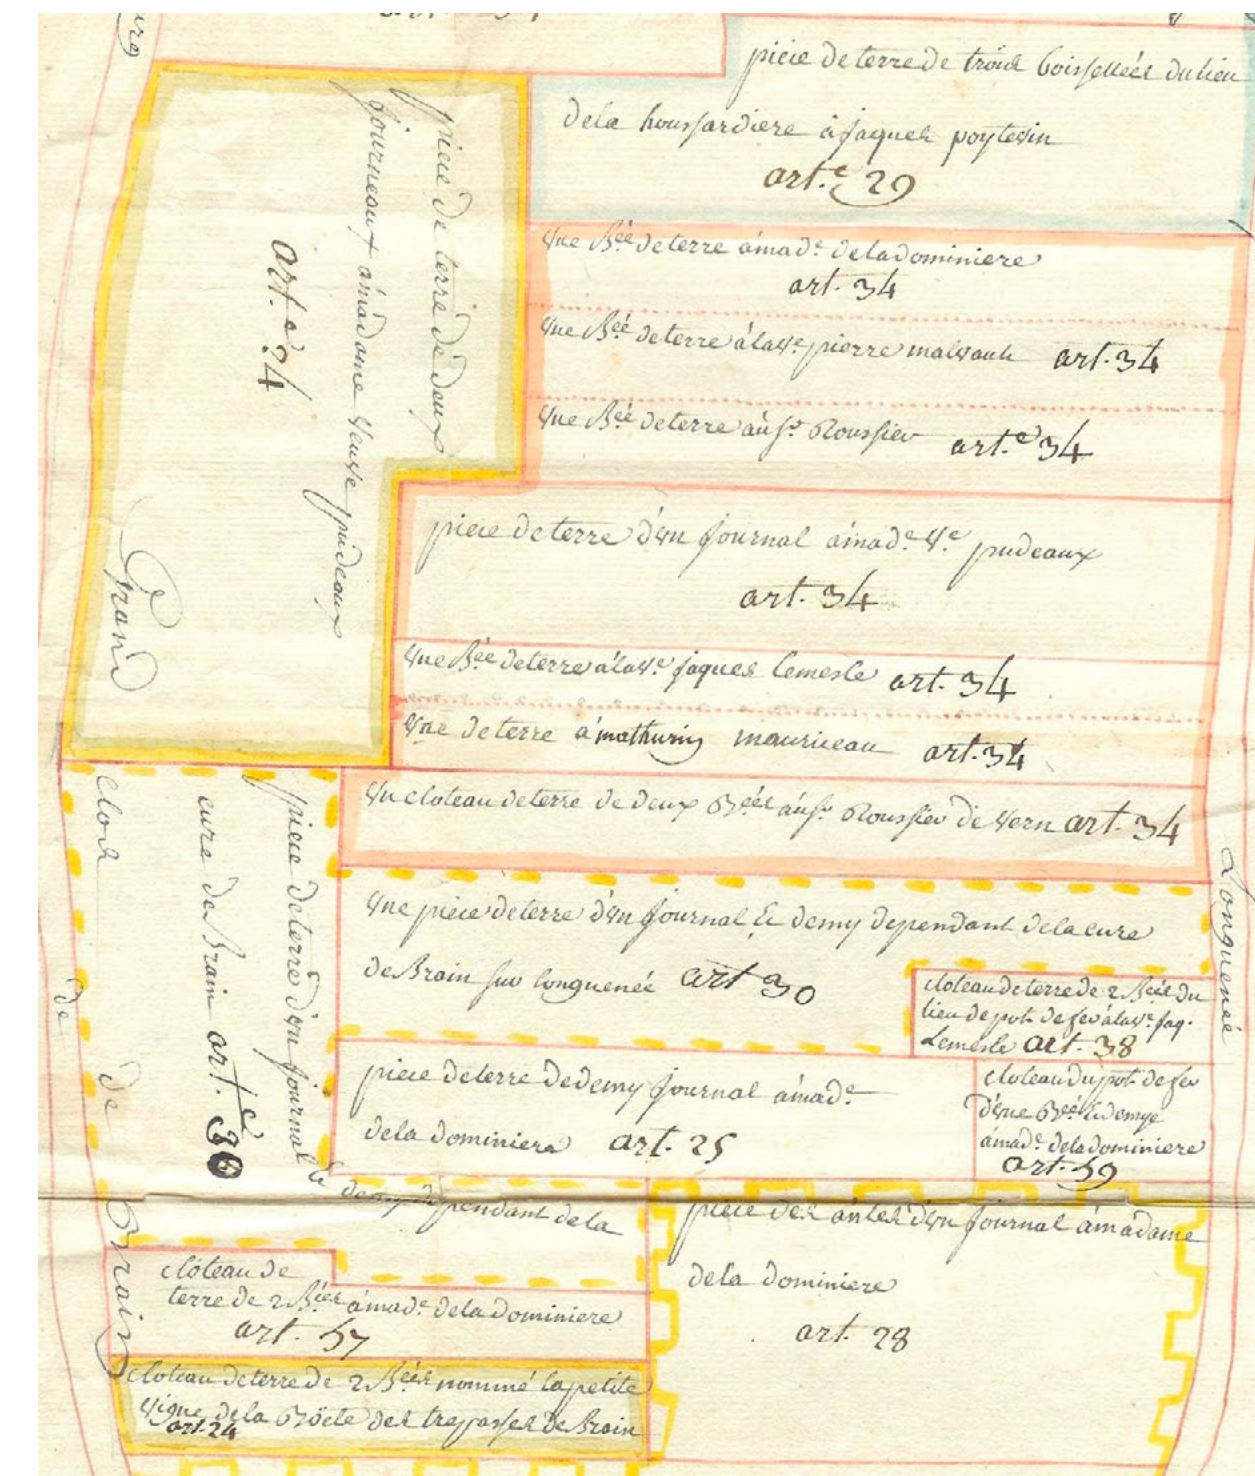 pièce de terre de trois boissellées du lieu
dela houssardiere à jaques poytevin
art.e 29
pièce de terre de deux
journeaux a madame veuve pudeaux
art.e 24
une B.ée de terre à mad.e dela dominiere
art. 34
une B.ée de terre à la v.e pierre malvault art. 34
une B.ée de terre au s.r Roussier art.e 34
pièce de terre d'un journal à mad.e v.e pudeaux
art. 34
une B.ée de terre à la v.e jaques lemesle art. 34
une de terre à mathurin mauriceau art. 34
un cloteau de terre de deux B.ées au s.r Roussier de vern art. 34
Grand
clos
de
de
Brain
Longuenée
une pièce de terre d'un journal & demy dependant dela cure
de Brain sur longuenée art 30
cloteau de terre de 2 B.ées du
lieu de pot de fer à la v.e jaq.
Lemesle art. 38
pièce de terre d'un journal & demy dependant de la
cure de Brain art.e 30
pièce de terre de demy journal à mad.e
dela dominiere art. 25
cloteau du pot de fer
d'une B.ée & demye
à mad.e dela dominiere
art. 59
pièce des d'un journal a madame
dela dominiere
art. 28
cloteau de
terre de 2 B.ées à mad.e dela dominiere
art. 57
cloteau de terre de 2 B.ées nommé la petite
vigne dela Boëte des trepasses de Brain
art. 24